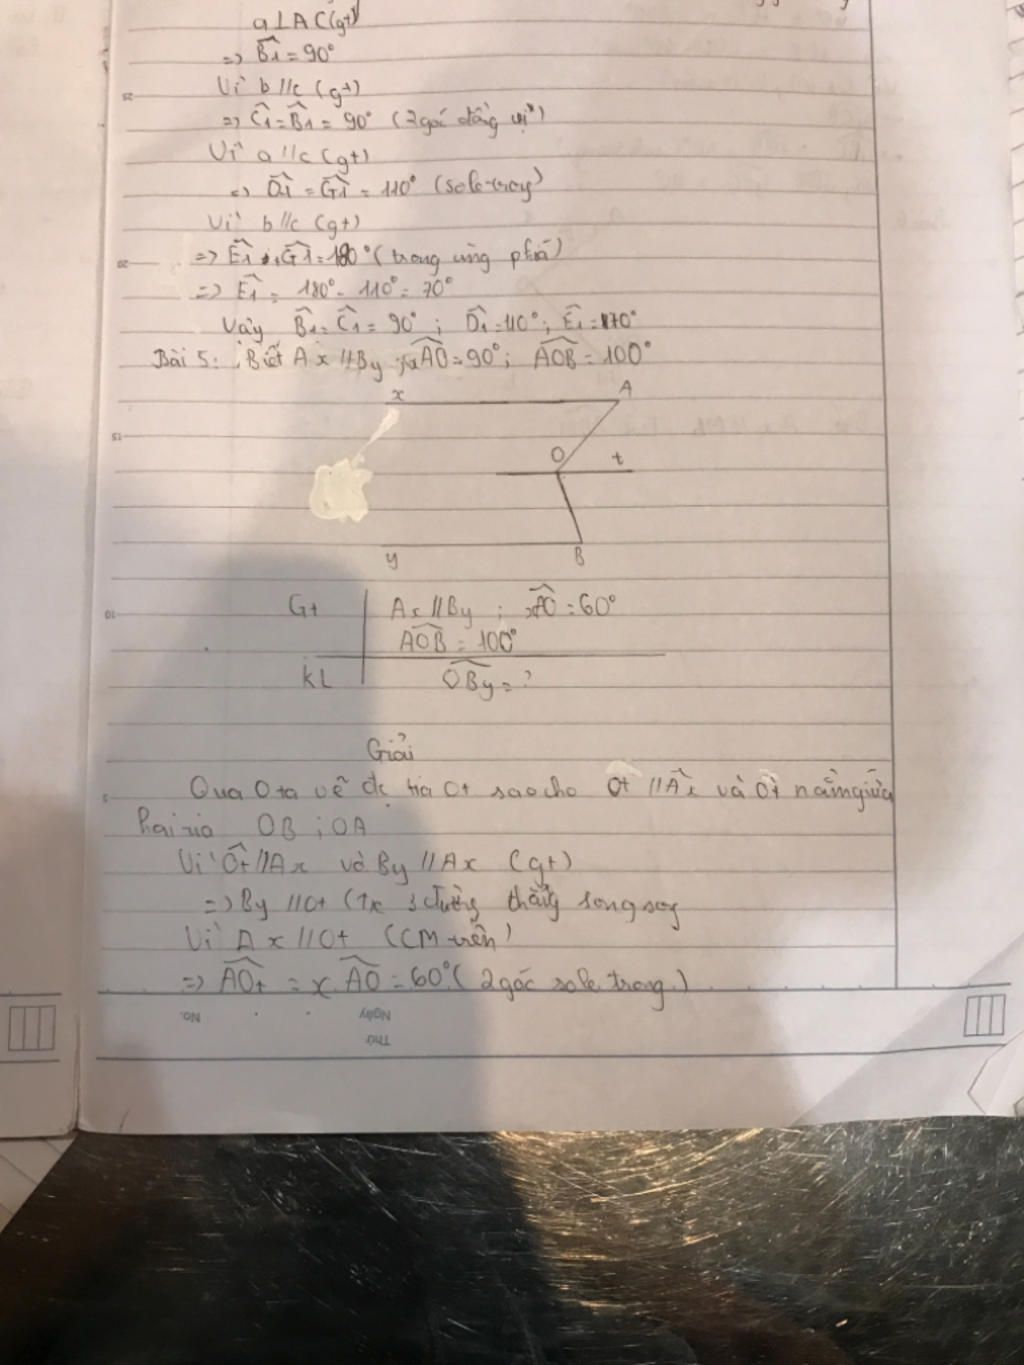 a⊥AC(gt)
=> B̂1 = 90°
Vì b//c (gt)
=> Ĉ1 = B̂1 = 90° (2 góc đồng vị)
Vì a//c (gt)
=> D̂1 = Ĝ1 = 110° (sole trong)
Vì b//c (gt)
=> Ê1 + Ĝ1 = 180° (trong cùng phía)
=> Ê1 = 180° - 110° = 70°
Vậy B̂1 = Ĉ1 = 90° ; D̂1 = 110° ; Ê1 = 70°
Bài 5: Biết Ax // By ; xAO = 90° ; AOB = 100°
x A
O t
y B
Gt Ax // By ; xAO = 60°
AOB = 100°
KL OBy = ?
Giải
Qua O ta vẽ đc tia Ot sao cho Ot // Ax và Ot nằm giữa
hai tia OB ; OA
Vì Ot // Ax và By // Ax (gt)
=> By // Ot (TC 3 đường thẳng song song
Vì Ax // Ot (CM trên)
=> AOt = xAO = 60° (2 góc sole trong)
No. Ngày
Thứ
25
20
15
10
5